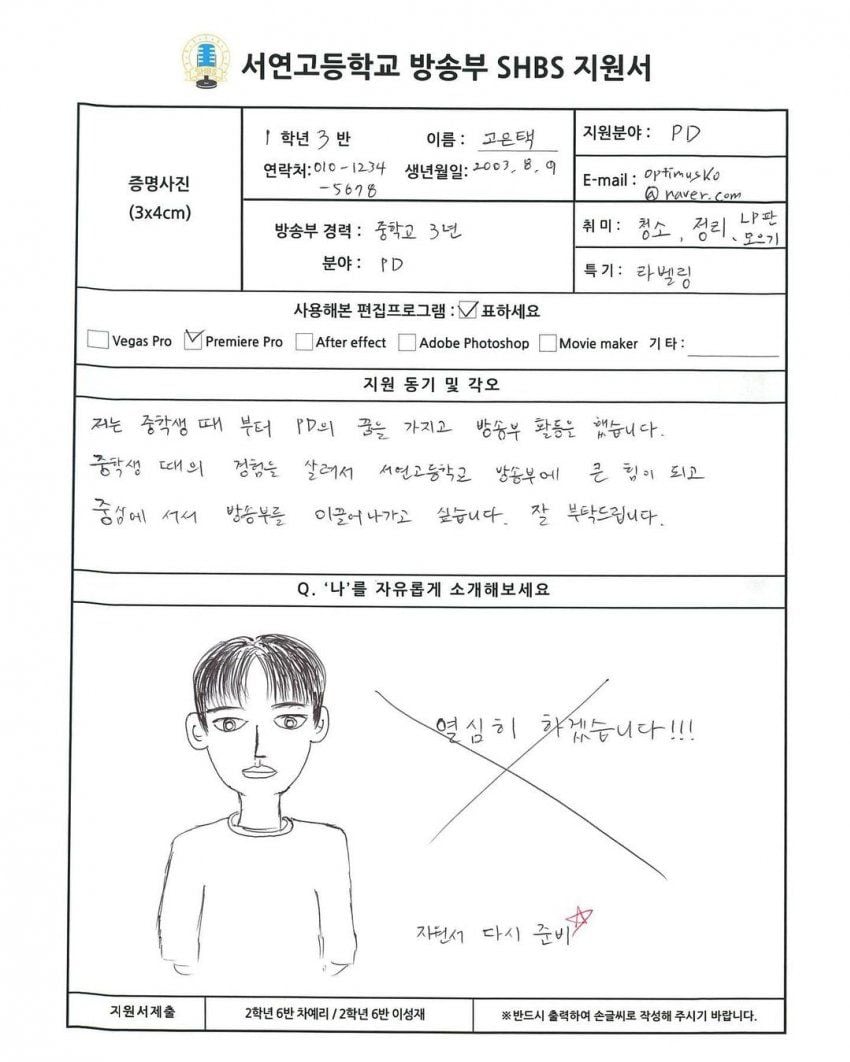 서연고등학교 방송부 SHBS 지원서
증명사진
(3x4cm)
1 학년 3 반 이름 : 고은택
연락처: 010-1234
-5678
생년월일: 2003. 8. 9
방송부 경력 : 중학교 3년
분야 : PD
지원분야 : PD
E-mail : optimusko
@naver.com
취미 : 청소, 정리, LP판
모으기
특기 : 라벨링
사용해본 편집프로그램 : ☑ 표하세요
☐ Vegas Pro ☑ Premiere Pro ☐ After effect ☐ Adobe Photoshop ☐ Movie maker 기타 :
지원 동기 및 각오
저는 중학생 때 부터 PD의 꿈을 가지고 방송부 활동을 했습니다.
중학생 때의 경험을 살려서 서연고등학교 방송부에 큰 힘이 되고
중심에 서서 방송부를 이끌어나가고 싶습니다. 잘 부탁드립니다.
Q. ‘나’를 자유롭게 소개해보세요
열심히 하겠습니다!!!
지원서 다시 준비
지원서제출
2학년 6반 차예리 / 2학년 6반 이성재
※반드시 출력하여 손글씨로 작성해 주시기 바랍니다.